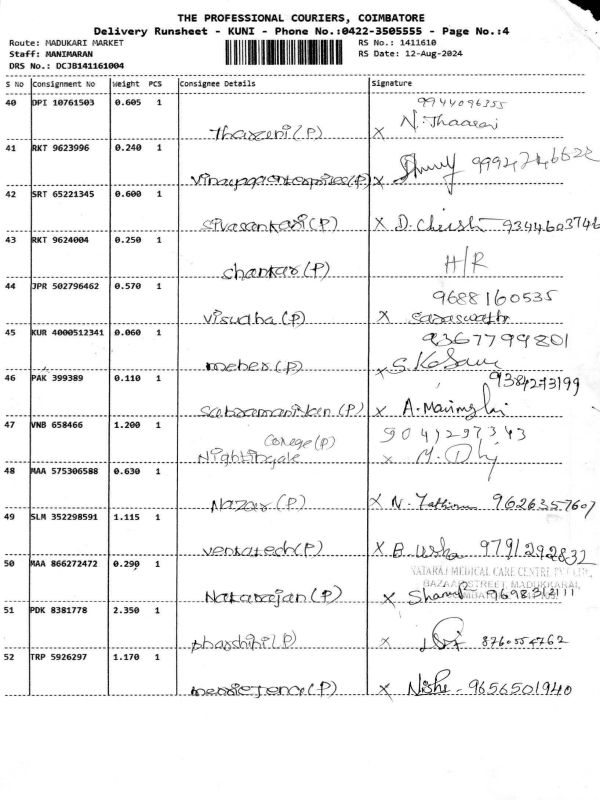 THE PROFESSIONAL COURIERS, COIMBATORE
Delivery Runsheet - KUNI - Phone No.:0422-3505555 - Page No.:4
Route: MADUKARI MARKET RS No.: 1411610
Staff: MANIMARAN RS Date: 12-Aug-2024
DRS No.: DCJB141161004
S No Consignment No Weight PCS Consignee Details Signature
40 DPI 10761503 0.605 1 9944096355
Tharani (P) X N. Thaarani
41 RKT 9623996 0.240 1
Vinayaga enterprises (P) X 9994746622
42 SRT 65221345 0.600 1
Sivasankari (P) X D. 9344603746
43 RKT 9624004 0.250 1 H/R
Chankar (P)
44 JPR 502796462 0.570 1 9688160535
Visudha (P) X Saraswathi
45 KUR 4000512341 0.060 1 9367799801
meher (P) X S.
46 PAK 399389 0.110 1 9384273199
(P) X A.
47 VNB 658466 1.200 1 9041297343
College (P)
Nightingale X M.
48 MAA 575306588 0.630 1
Nazar (P) X N. Fathima 9626357607
49 SLM 352298591 1.115 1
Venkatech (P) X B. Usha 9791292832
50 MAA 866272472 0.290 1 NATARAJ MEDICAL CARE CENTRE PVT LTD.,
BAZAAR STREET, MADUKKARAI,
Natarajan (P) X 9698312111
51 PDK 8381778 2.350 1
Dharshini (P) 8760554762
52 TRP 5926297 1.170 1
(P) X Nisha - 9656501940